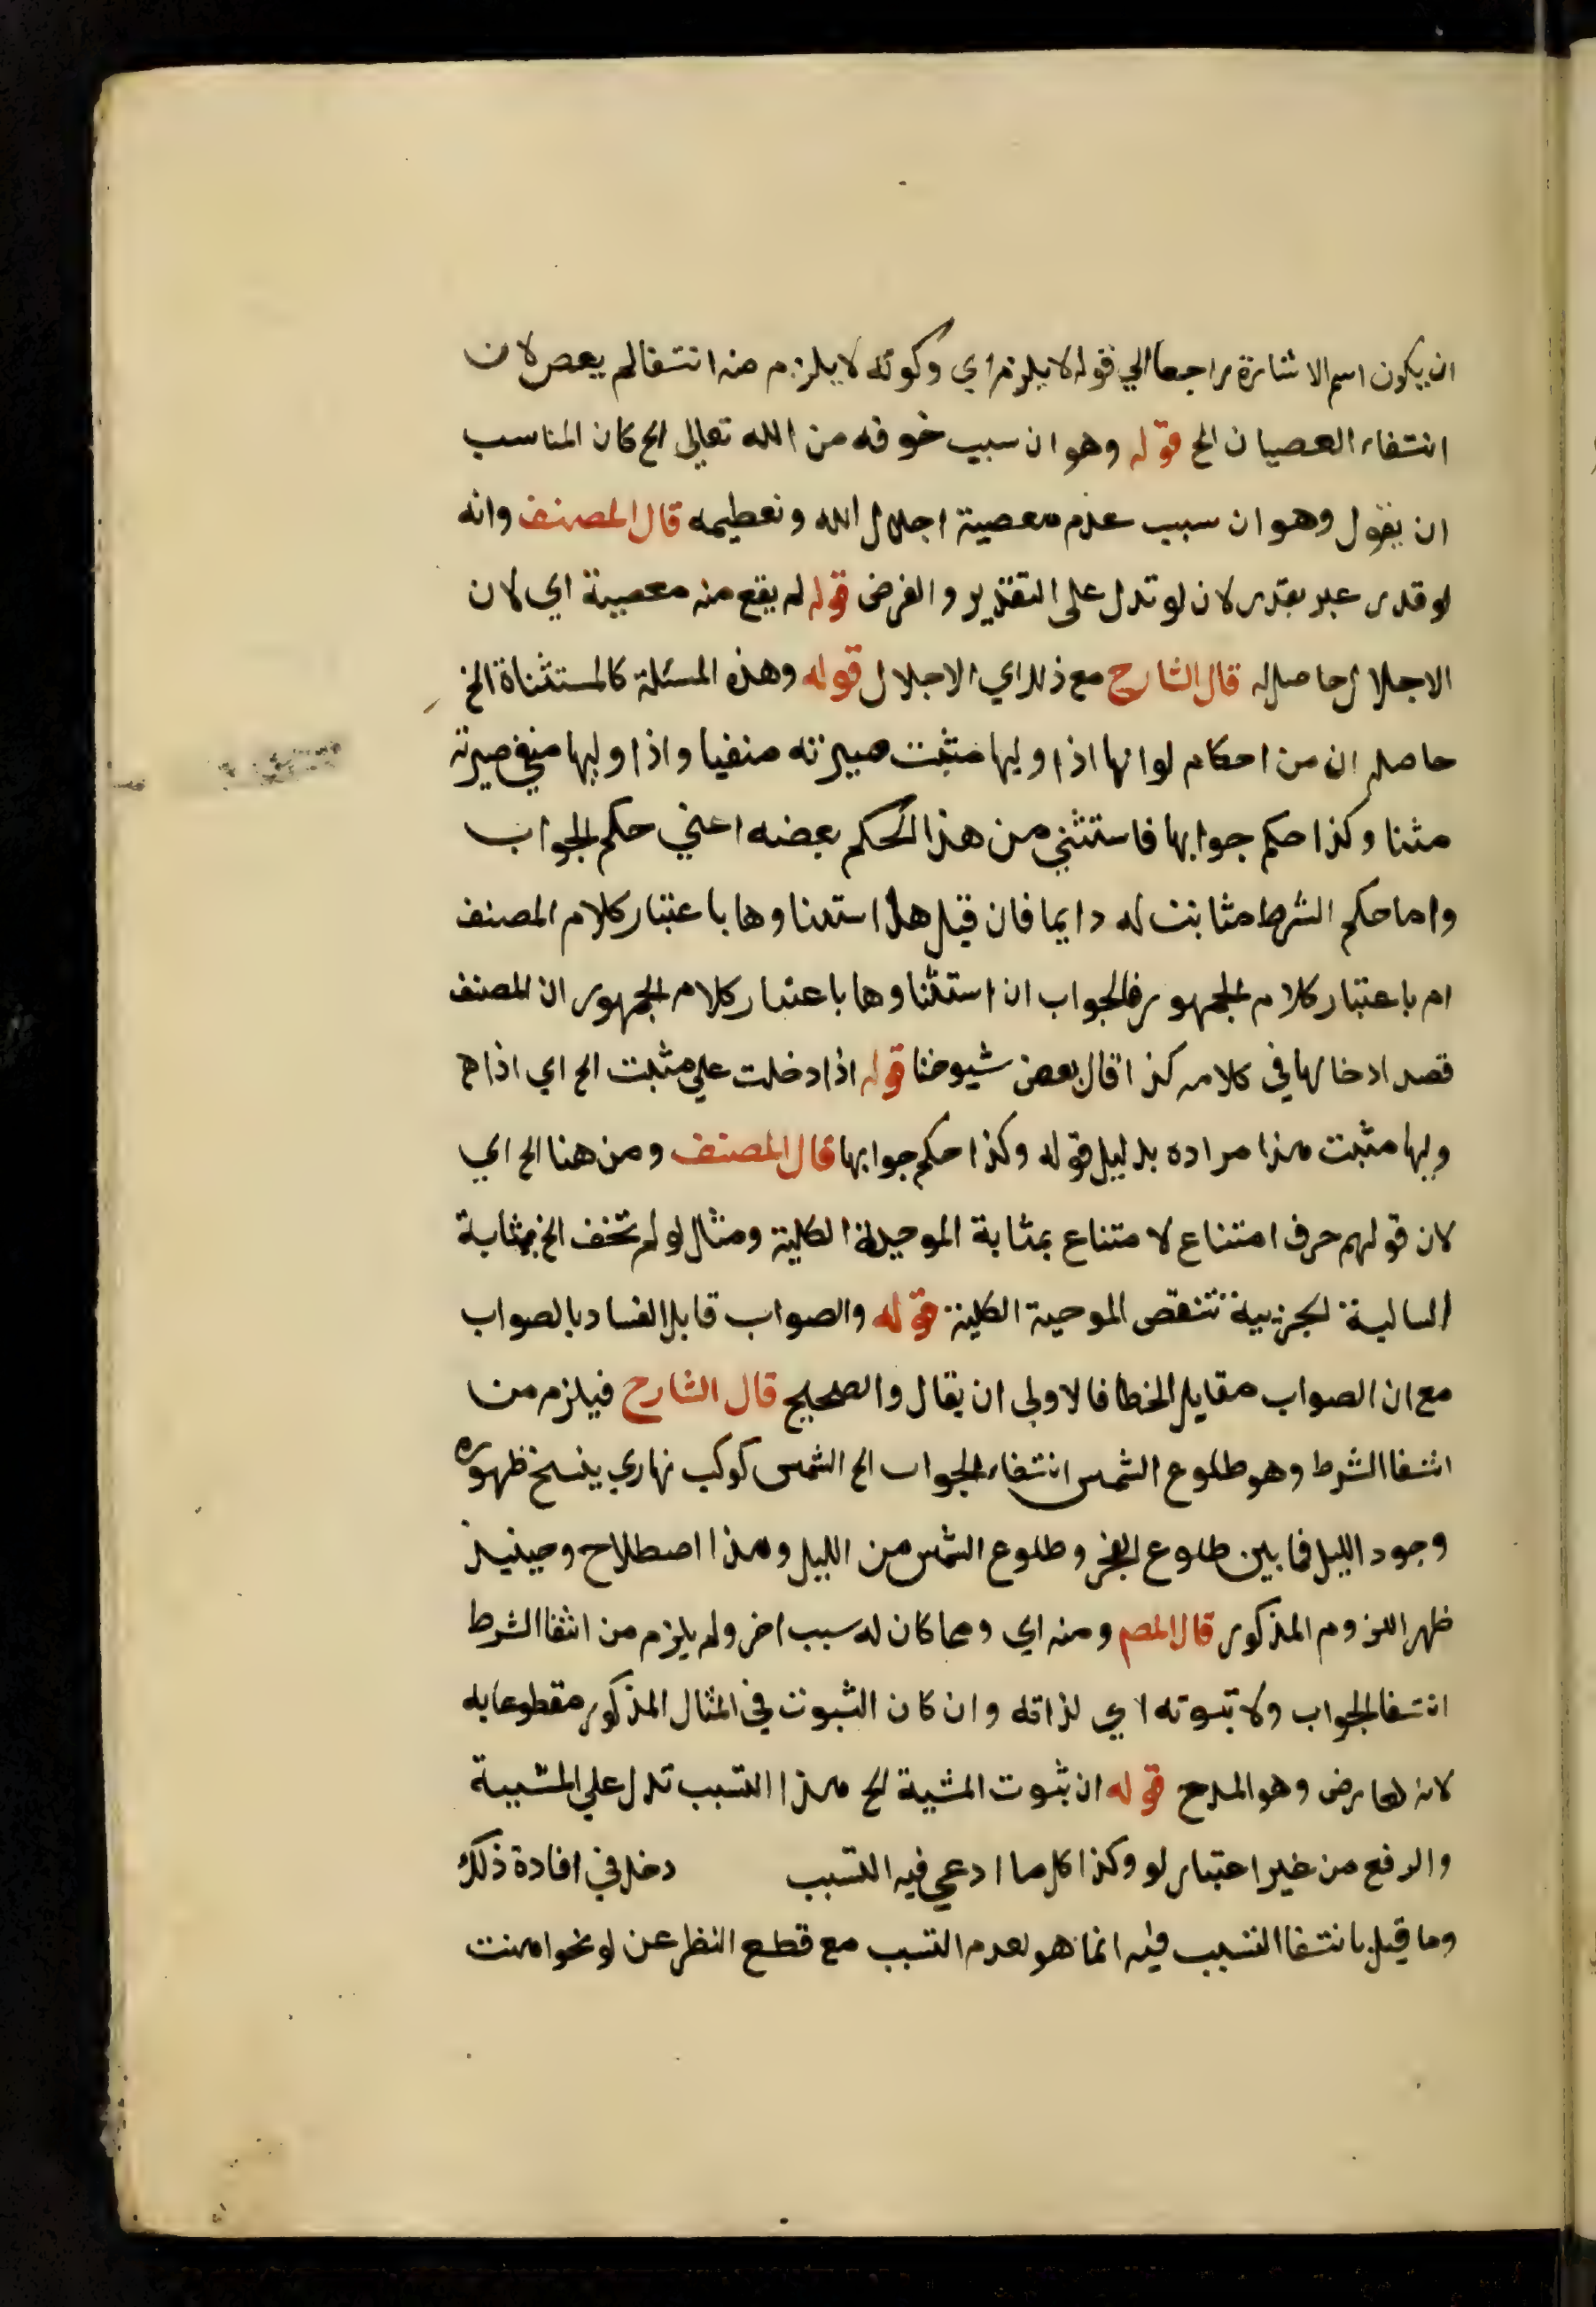 ان يكون اسم الاشارة راجعا الي قوله لا يلزم اي وكونه لا يلزم منه انتفا لم يعص لان
انتفاء العصيان الخ قوله وهو ان سبب خوفه من الله تعالي الخ كان المناسب
ان يقول وهو ان سبب عدم معصية اجلال الله وتعظيمه قال المصنف وانه
لو قدر عبر بقدر لان لو تدل على التقدير والفرض قوله لم يقع منه معصية اي لان
الاجلال حاصل له قال الشارح مع ذلك اي الاجلال قوله وهذه المسئلة كالمستثناة الخ
حاصله ان من احكام لو انها اذا وليها مثبت صيرته منفيا واذا وليها منفي صيرته
مثبتا وكذا حكم جوابها فاستثني من هذا الحكم بعضه اعني حكم الجواب
واما حكم الشرط فثابت له دايما فان قيل هل استثناوها باعتبار كلام المصنف
ام باعتبار كلام الجمهور فالجواب ان استثناوها باعتبار كلام الجمهور ان المصنف
قصد ادخالها في كلامه كذا قال بعض شيوخنا قوله اذا دخلت علي مثبت الخ اي اذا
وليها مثبت هذا مراده بدليل قوله وكذا حكم جوابها قال المصنف ومن هنا الخ اي
لان قولهم حرف امتناع لامتناع بمثابة الموجبة الكلية ومثال لو لم تخف الخ بمثابة
السالبة الجزيية تنقض الموجبة الكلية قوله والصواب قابل الفساد بالصواب
مع ان الصواب مقابل الخطا فالاولى ان يقال والصحيح قال الشارح فيلزم من
انتفا الشرط وهو طلوع الشمس انتفاء الجواب الخ الشمس كوكب نهاري ينسخ ظهوره
وجود الليل فما بين طلوع الفجر وطلوع الشمس من الليل وهذا اصطلاح وحينيذ
ظهر اللزوم المذكور قال المص ومنه اي ومما كان له سبب اخر ولم يلزم من انتفا الشرط
انتفا الجواب ولا ثبوته اي لذاته وان كان الثبوت في المثال المذكور مقطوعا به
لانه لعارض وهو المدح قوله ان ثبوت المشية الخ هذا التسبب تدل علي المشيية
والرفع من غير اعتبار لو وكذا كل ما ادعي فيه التسبب دخل في افادة ذلك
وما قيل بانتفا التسبب فيه انما هو لعدم التسبب مع قطع النظر عن لو نحو امنت